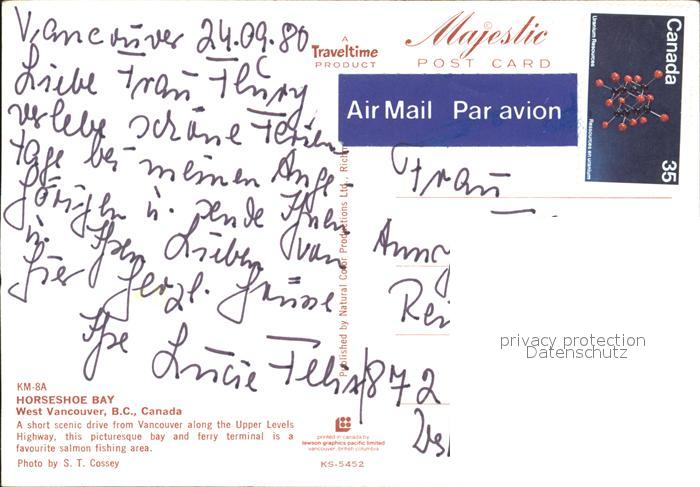 Vancouver 24.09.80
Liebe Frau Flury
verlebe schöne Ferien
tage bei meinen Ange-
hörigen u. sende Ihnen
u. Ihren Lieben von
hier herzl. Grüsse
Ihre Lucie Felix
A
Traveltime
PRODUCT
Majestic
POST CARD
Air Mail Par avion
Canada
35
Uranium Resources
Resources en uranium
Frau
Anny
Rei
8872
privacy protection
Datenschutz
Published by Natural Color Productions Ltd., Richm
KM-8A
HORSESHOE BAY
West Vancouver, B.C., Canada
A short scenic drive from Vancouver along the Upper Levels
Highway, this picturesque bay and ferry terminal is a
favourite salmon fishing area.
Photo by S. T. Cossey
printed in canada by
lawson graphics pacific limited
vancouver, british columbia
KS-5452